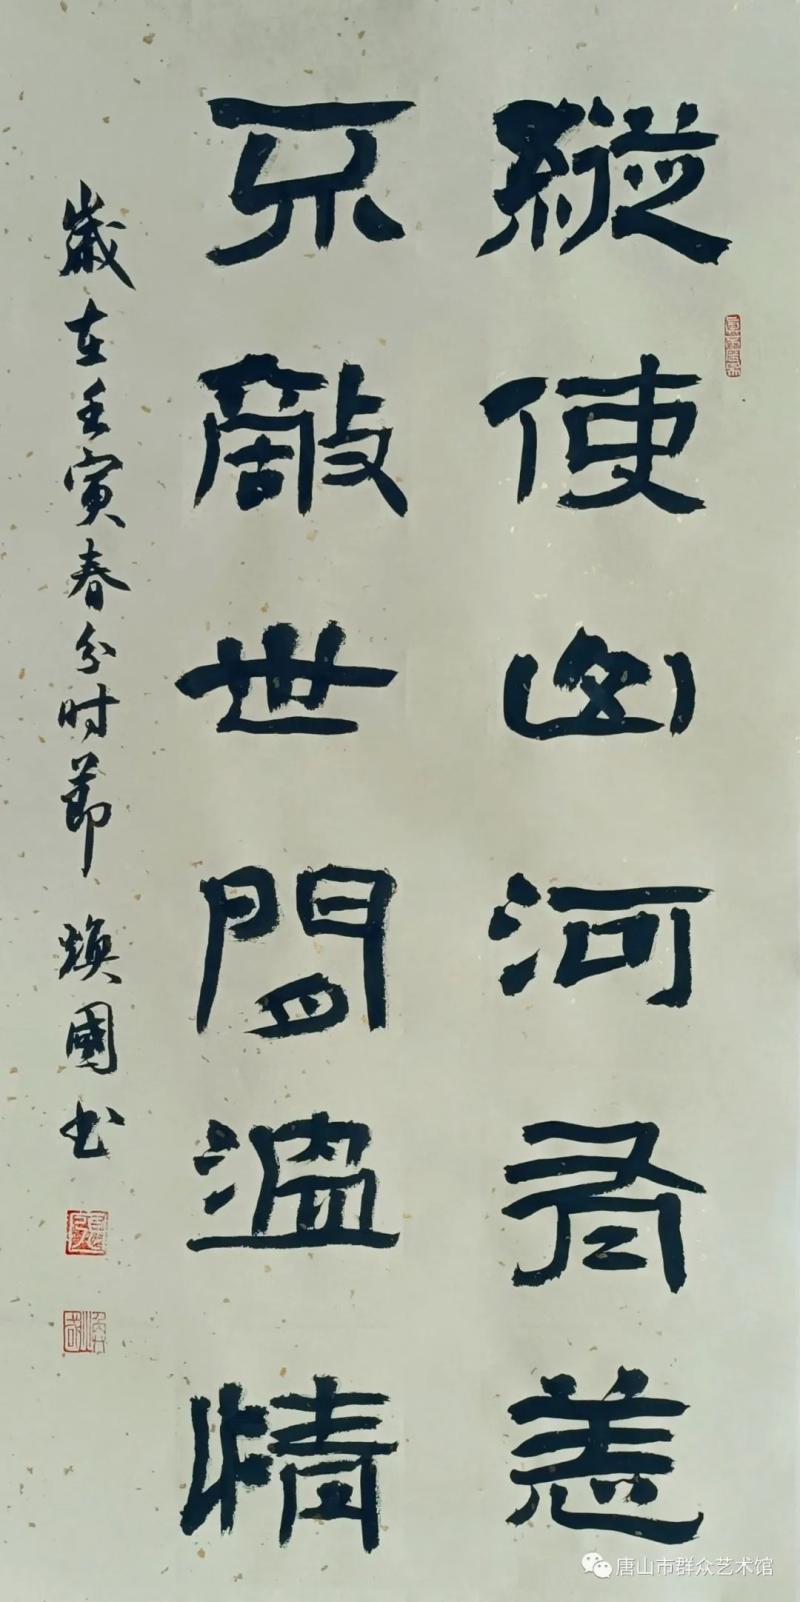 縱使山河有恙
不敵世間温情
歲在壬寅春分時節 焕國书
唐山市群众艺术馆